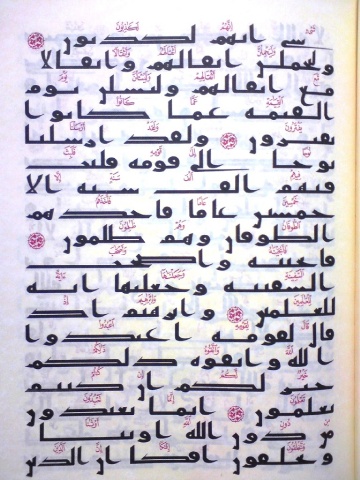 شىء انهم لكذبون
وليحملن اثقالهم واثقالا
مع اثقالهم وليسلن يوم
القيمه عما كانوا
يفترون ولقد ارسلنا
نوحا الى قومه فلبث
فيهم الف سنه الا
خمسين عاما فاخذهم
الطوفان وهم ظلمون
فانجينه واصحب
السفينه وجعلنها ايه
للعلمين وابرهيم اذ
قال لقومه اعبدوا
الله واتقوه ذلكم
خير لكم ان كنتم
تعلمون انما تعبدون
من دون الله اوثنا
وتخلقون افكا ان الذين